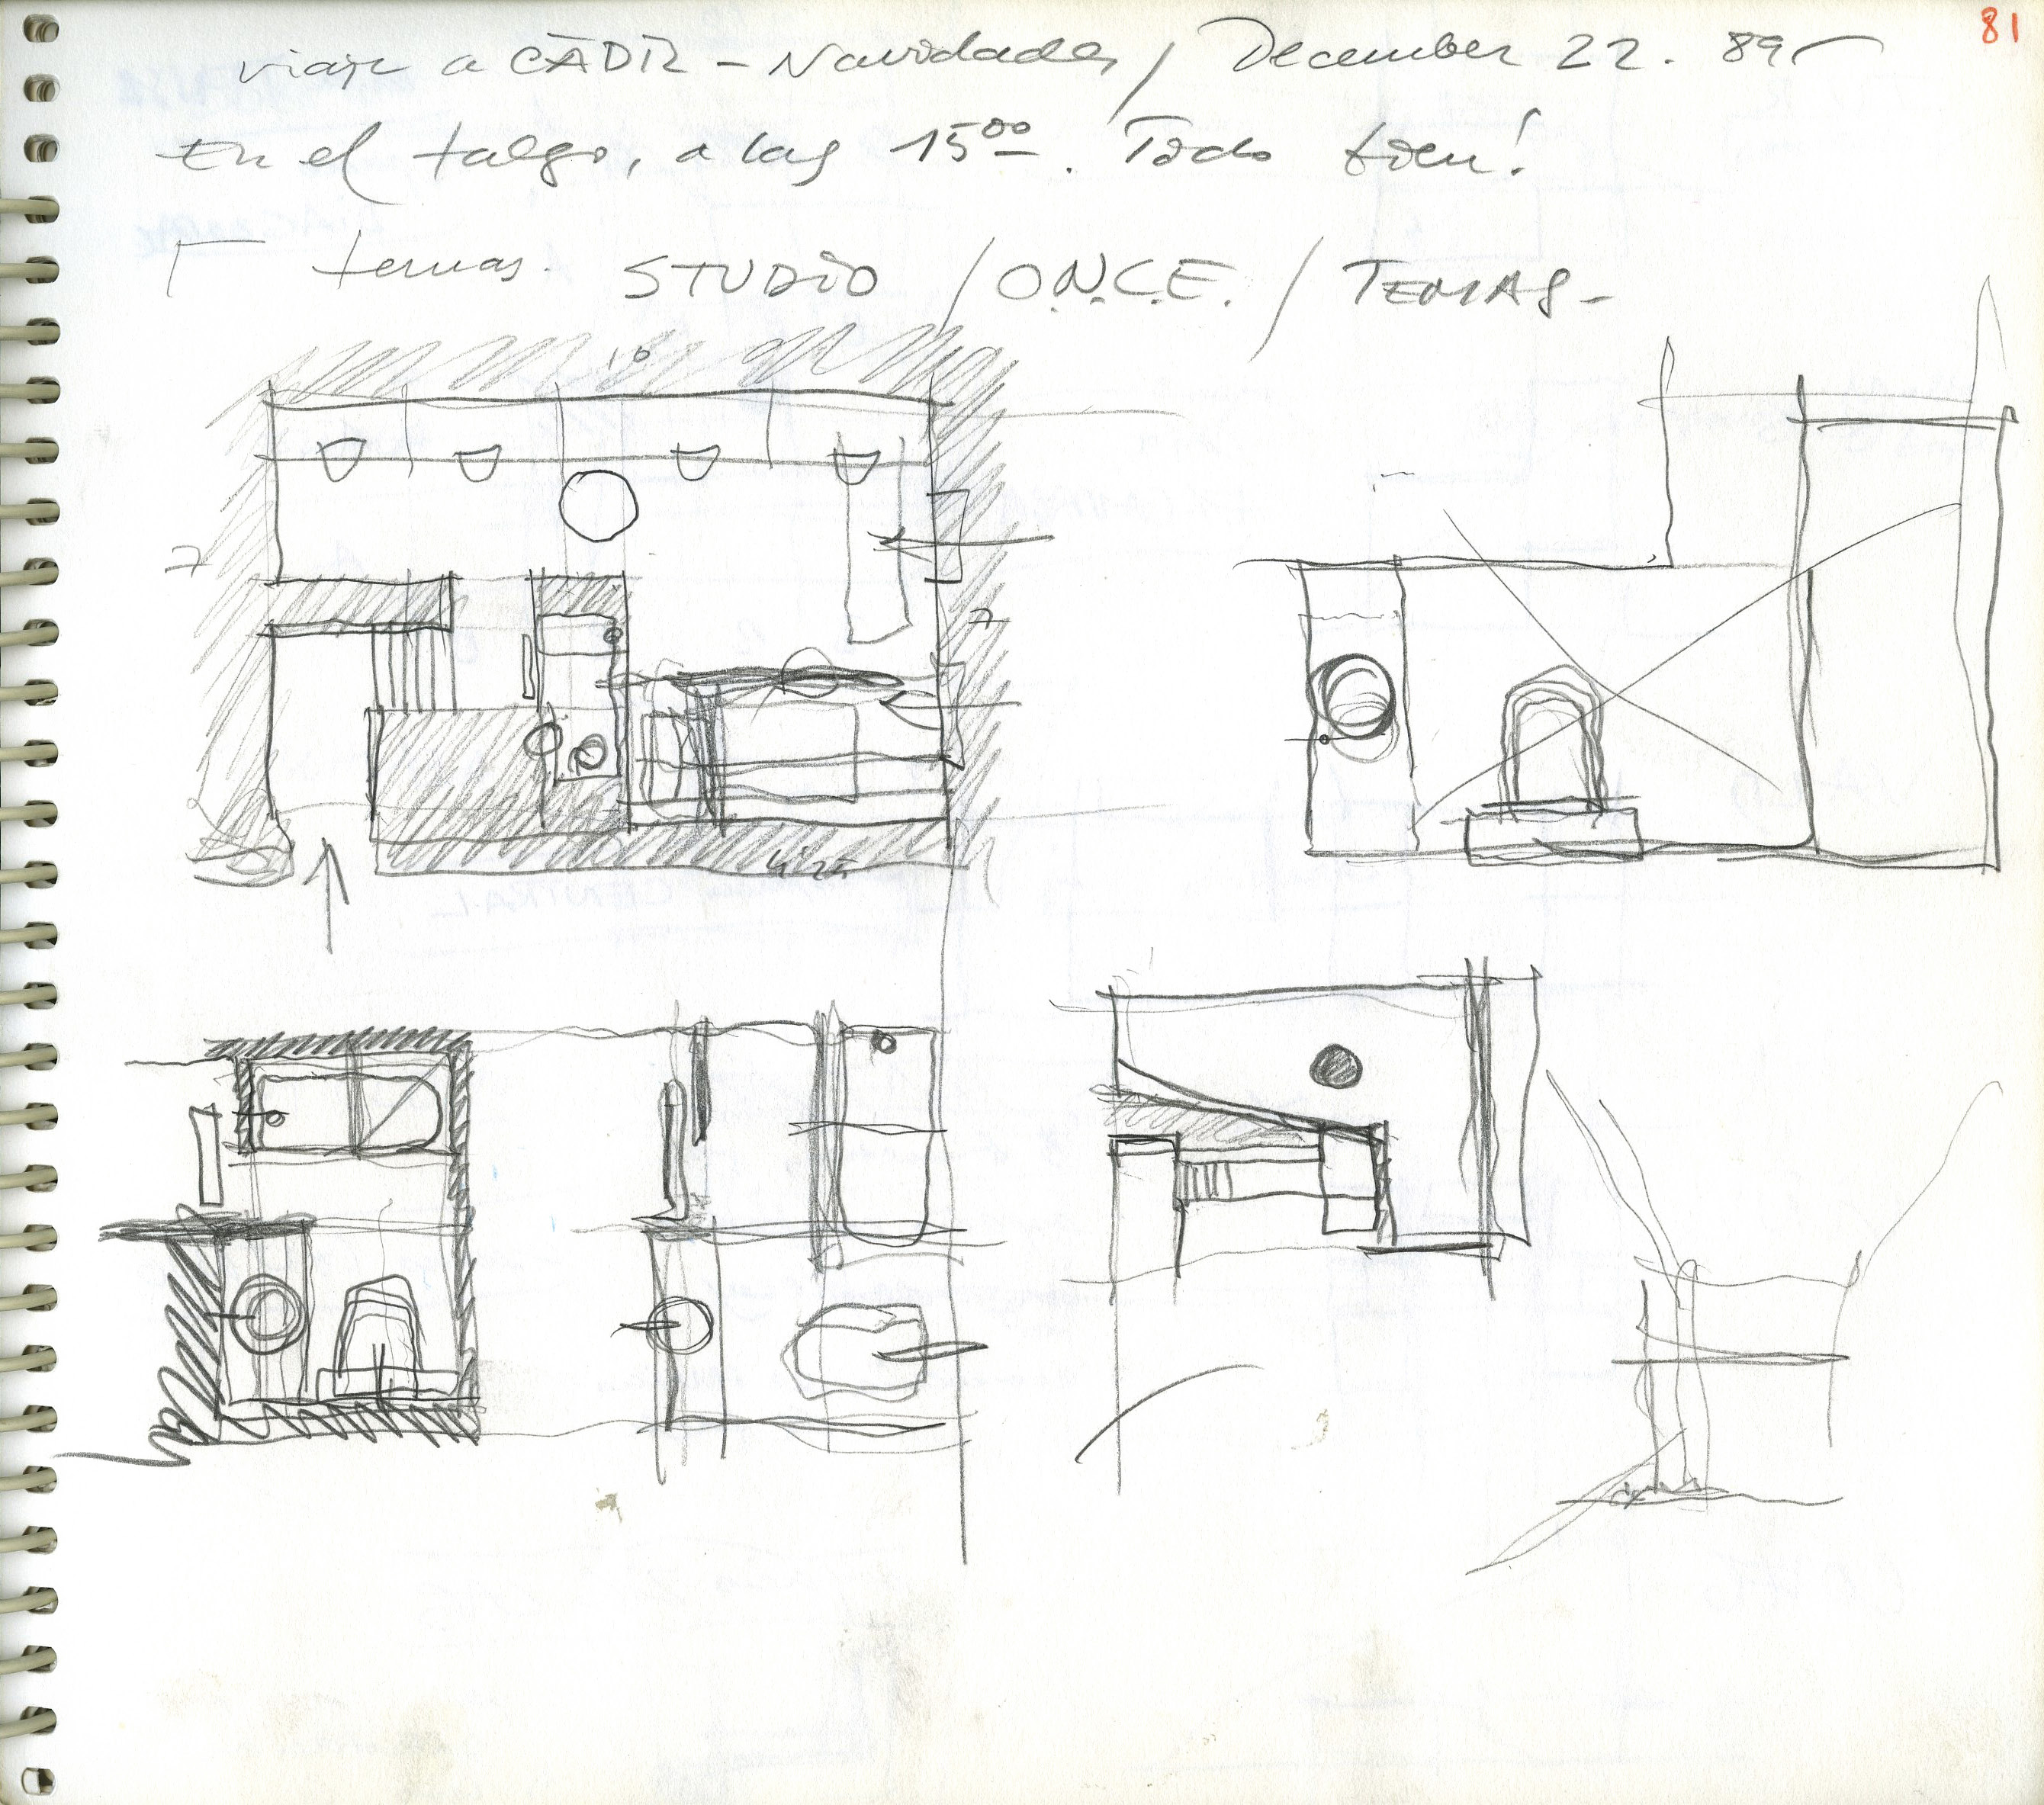 81
viaje a CÁDIZ - Navidades / December 22. 89
En el talgo, a las 15ºº. Todo bien!
temas. STUDIO / O.N.C.E. / TEMAS -
10
7
7
4'25